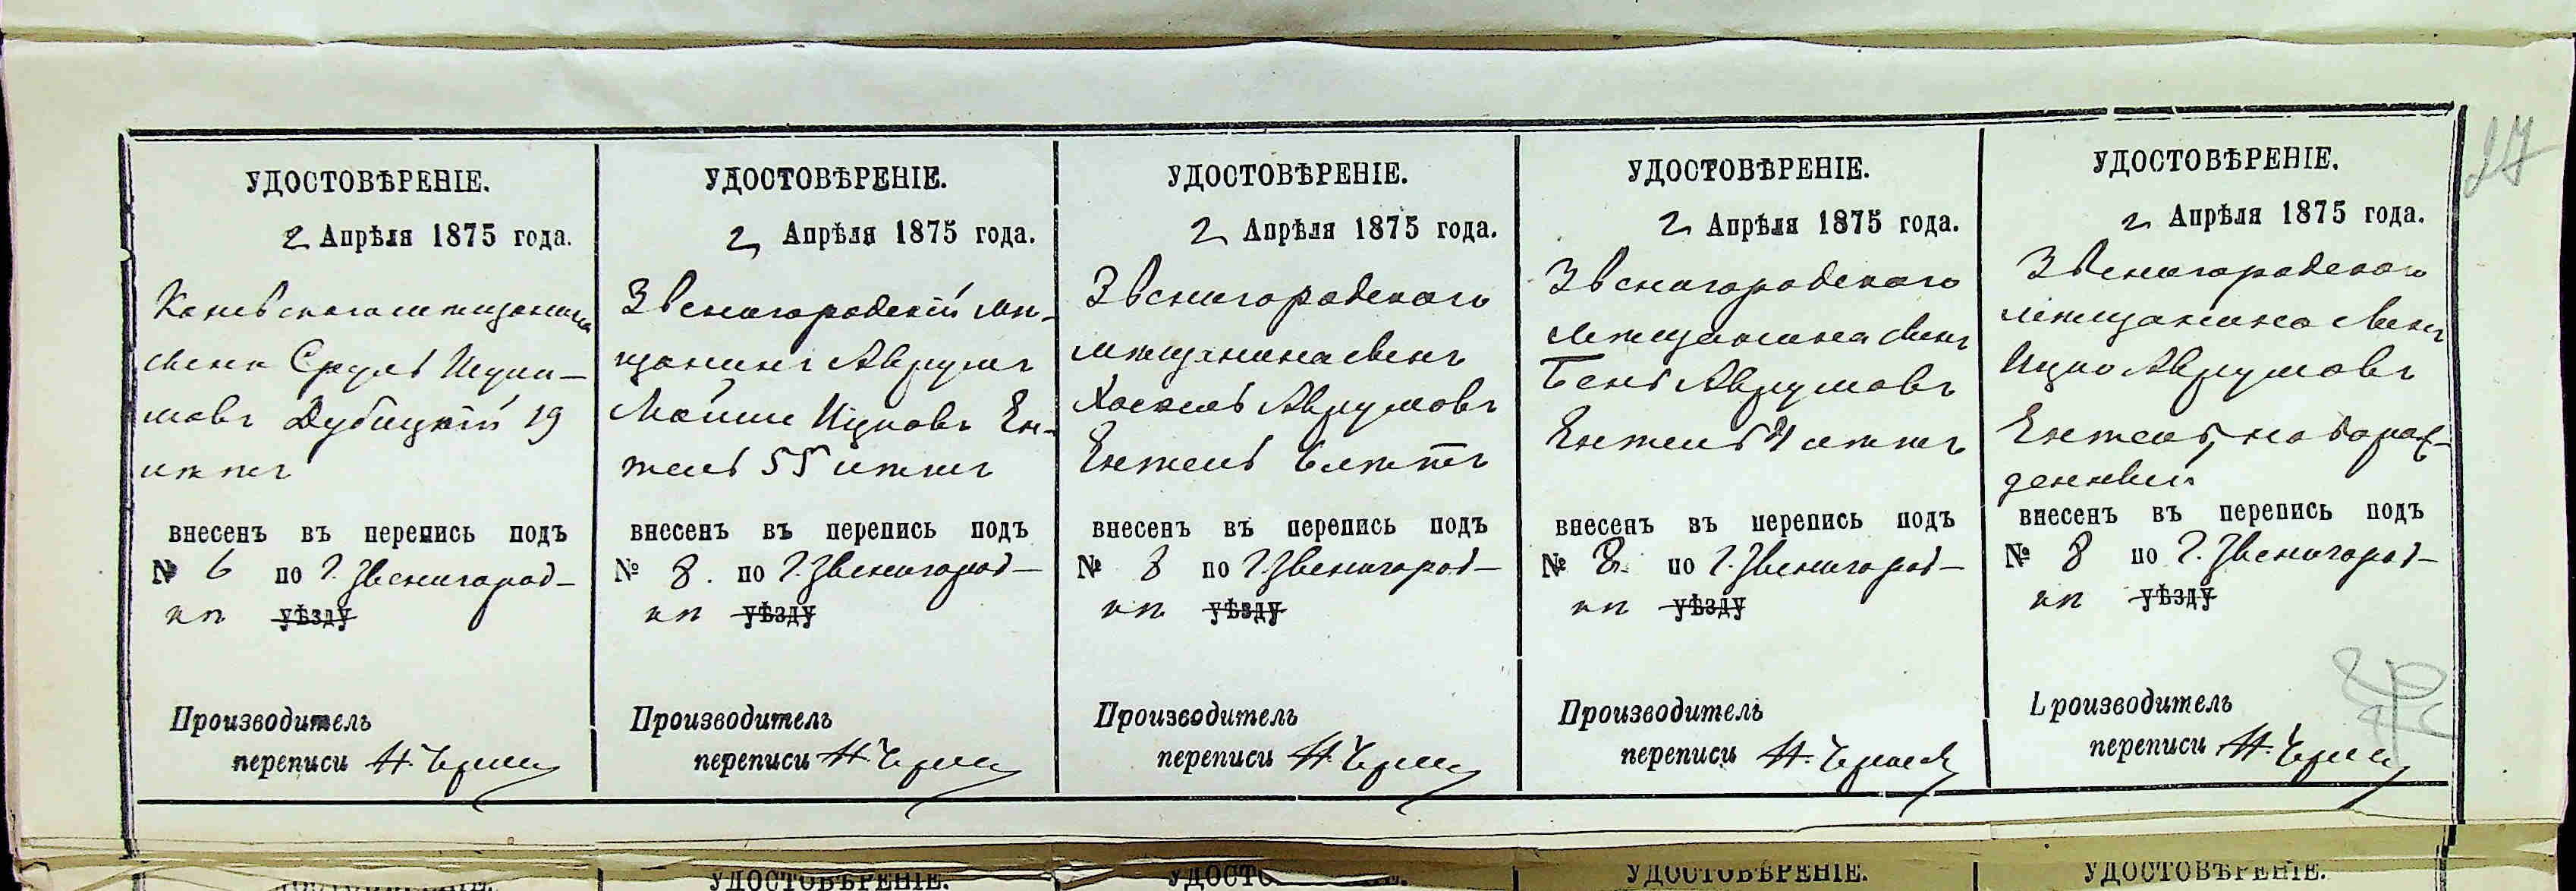 27
УДОСТОВѢРЕНІЕ.
2 Апрѣля 1875 года.
Каневскаго мѣщанина
сынъ Сруль Ицко-
мовъ Дубицкій 19
лѣтъ
внесенъ въ перепись подъ
№ 6 по Г. Звенигород-
кѣ уѣзду
Производитель
переписи Н.
УДОСТОВѢРЕНІЕ.
2 Апрѣля 1875 года.
Звенигородскій мѣ-
щанинъ Аврумъ
Мойше Ицковъ Ен-
тель 55 лѣтъ
внесенъ въ перепись подъ
№ 8. по Г. Звенигород-
кѣ уѣзду
Производитель
переписи Н.
УДОСТОВѢРЕНІЕ.
2 Апрѣля 1875 года.
Звенигородскаго
мѣщанина сынъ
Хаскель Аврумовъ
Ентель 6 лѣтъ
внесенъ въ перепись подъ
№ 8 по Г. Звенигород-
кѣ уѣзду
Производитель
переписи Н.
УДОСТОВѢРЕНІЕ.
2 Апрѣля 1875 года.
Звенигородскаго
мѣщанина сынъ
Бень Аврумовъ
Ентель 4 лѣтъ
внесенъ въ перепись подъ
№ 8. по Г. Звенигород-
кѣ уѣзду
Производитель
переписи Н.
УДОСТОВѢРЕНІЕ.
2 Апрѣля 1875 года.
Звенигородскаго
мѣщанина сынъ
Ицко Аврумовъ
Ентель, новорож-
денный
внесенъ въ перепись подъ
№ 8 по Г. Звенигород-
кѣ уѣзду
Производитель
переписи Н.
УДОСТОВѢРЕНІЕ.
УДОСТОВѢРЕНІЕ.
УДОСТОВѢРЕНІЕ.